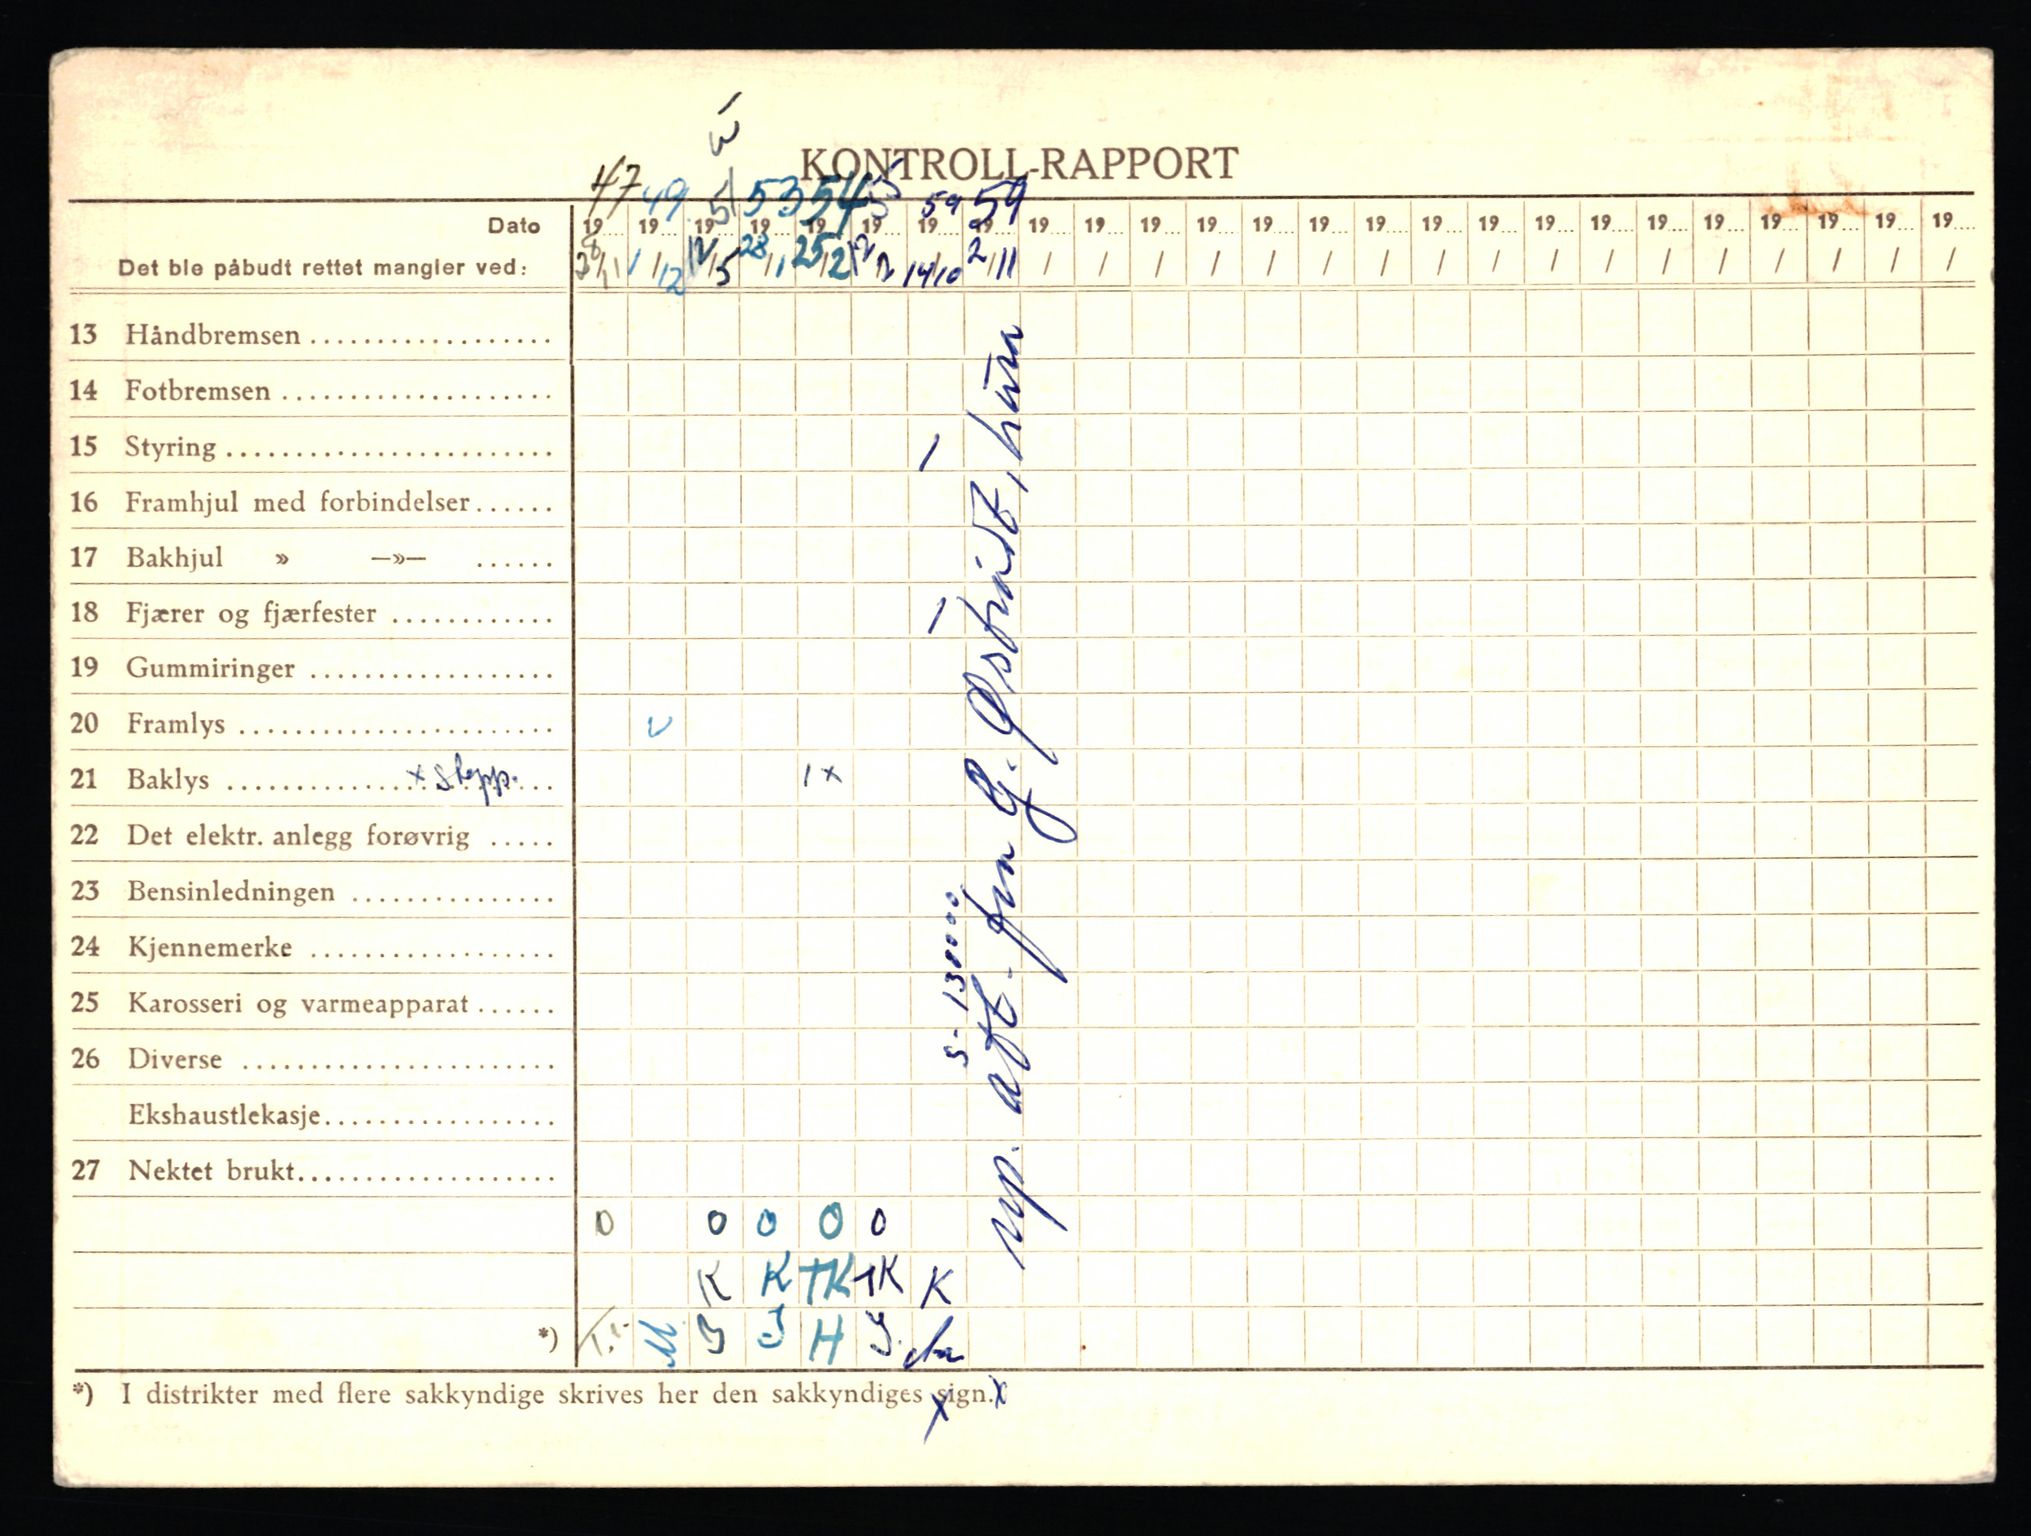 KONTROLL-RAPPORT
47 49 51 53 54 55 59 59
Dato 19.... 19.... 19.... 19.... 19.... 19.... 19.... 19.... 19.... 19.... 19.... 19.... 19.... 19.... 19.... 19.... 19.... 19.... 19.... 19.... 19.... 19.... 19.... 19.... 19....
Det ble påbudt rettet mangler ved: 1/12 12/5 28/1 25/2 14/10 2/11 / / / / / / / / / / / / / / / / /
13 Håndbremsen
14 Fotbremsen
15 Styring /
16 Framhjul med forbindelser
17 Bakhjul » —»—
18 Fjærer og fjærfester /
19 Gummiringer
20 Framlys v
21 Baklys x stopp. 1 x
22 Det elektr. anlegg forøvrig
23 Bensinledningen
24 Kjennemerke
25 Karosseri og varmeapparat
26 Diverse
Ekshaustlekasje
27 Nektet brukt
0 0 0 0 0
K K TK TK K
*) M J J H J.
S- 130000
att. G. Østbridt,
*) I distrikter med flere sakkyndige skrives her den sakkyndiges sign. x
x